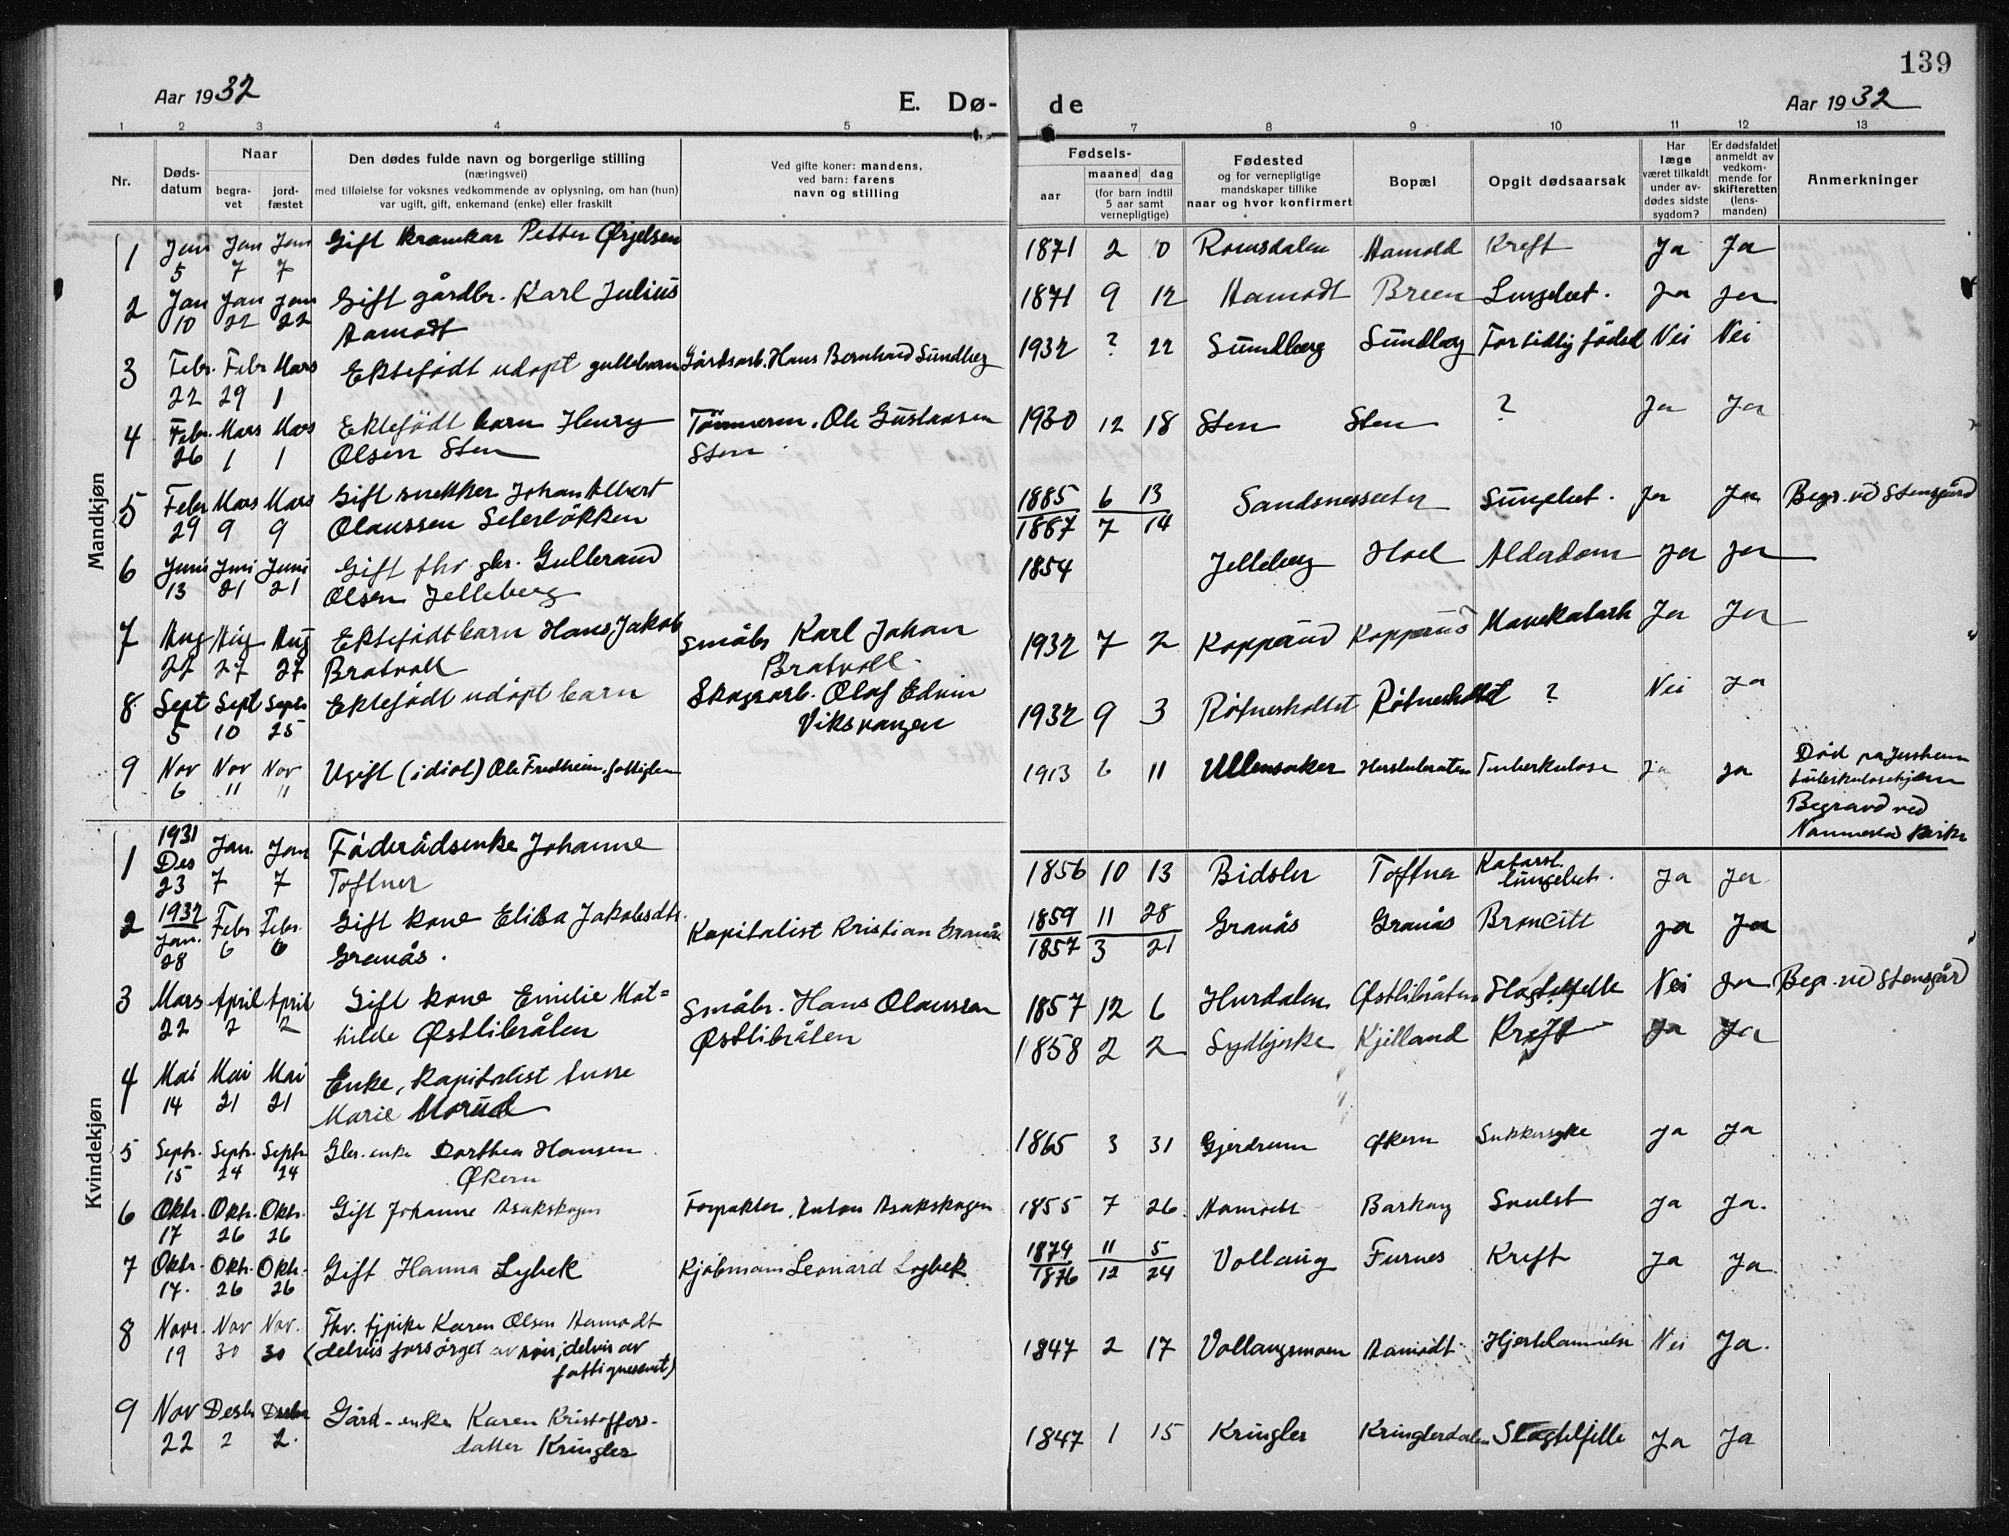 139
Aar 1932
E. Dø-
de
Aar 1932
1 2 3 4 5 6 7 8 9 10 11 12 13
Nr.
Døds-
datum
Naar
begra-
vet
jord-
fæstet
Den dødes fulde navn og borgerlige stilling
(næringsvei)
med tilføielse for voksnes vedkommende av oplysning, om han (hun)
var ugift, gift, enkemand (enke) eller fraskilt
Ved gifte koner: mandens,
ved barn: farens
navn og stilling
Fødsels-
aar
maaned dag
(for barn indtil
5 aar samt
vernepligtige)
Fødested
og for vernepligtige
mandskaper tillike
naar og hvor konfirmert
Bopæl
Opgit dødsaarsak
Har
læge
været tilkaldt
under av-
dødes sidste
sygdom?
Er dødsfaldet
anmeldt av
vedkom-
mende for
skifteretten
(lens-
manden)
Anmerkninger
Mandkjøn
1 Jan Jan Jan Gift Petter Ørjelsen 1871 2 0 Romsdalen Kreft Ja Ja
5 7 7
2 Jan Jan Jan Gift gårdbr. Karl Julius 1871 9 12 Aamodt Breen Lungebet. Ja Ja
10 22 22 Aamodt
3 Febr. Febr Mars Ektefödt udöpt guttebarn Gårdsarb. Hans Bernhard Sundberg 1932 ? 22 Sundberg Sundberg For tidlig födsel Nei Nei
22 29 1
4 Febr. Mars Mars Ektefödt barn Henry Tömmerm. Ole Gustavsen 1930 12 18 Sten Sten ? Ja Ja
26 1 1 Olsen Sten Sten
5 Febr Mars Mars Gift snekker Johan Albert 1885 6 13 Sandsnesseter Lungebet. Ja Ja Begr. ved Stensgård
29 9 9 Olaussen Seterlökken 1887 7 14
6 Juni Juni Juni Gift fhv. gbr. Gulbrand 1854 Jelleberg Hoel Alderdom Ja Ja
13 21 21 Olsen Jelleberg
7 Aug Aug Aug Ektefödt barn Hans Jakob Småbr Karl Johan 1932 7 2 Kopperud Kopperud Mavekatarh Ja Ja
22 27 27 Bratvoll Bratvoll.
8. Sept Sept Septr Ektefödt udöpt barn Skogsarb. Olaf Edvin 1932 9 3 Rötnesholtet Rötnesholtet ? Nei Ja
5 10 25 Viksvangen
9 Nov Nov Nov Ugift (idiot) Ole Fredheim, fattiglem 1913 6 11 Ullensaker Tuberkulose Ja Ja Död på Jessheim
6 11 11 tuberkulosehjem
Begravd ved
Nannestad kirke
Kvindekjøn
1 1931
Des Jan. Jan Föderådsenke Johanne 1856 10 13 Bidsler Toftner Katarrh. lungebet. Ja Ja
23 7 7 Toftner
2 1932 Febr Febr. Gift kone Elisa Jakobsdtr. Kapitalist Kristian Granås 1859 11 28 Granås Granås Broncitt Ja Ja
Jan. 28 6 6 Granås. 1857 3 21
3 Mars April April Gift kone Emilie Mat= Småbr. Hans Olaussen 1857 12 6 Hurdalen Østlibråten Slagtilfelle Nei Ja Begr. ved Stensgård
22 2 2 hilde Østlibråten Østlibråten
1858 2 2 Kjilland Kreft Ja Ja
4 Mai Mai Mai Enke, kapitalist
14 21 21 Marie Morud
5 Septr. Septr. Septr Gbr. enke Dorthea Hansen 1865 3 31 Gjerdrum Økern Sukkersyke Ja Ja
15 24 24 Økern
6 Oktr. Oktr. Oktr. Gift Johanne Asakskogen Forpakter Anton Asakskogen 1855 7 26. Aamodt Ja Ja.
17 26 26
7 Oktr. Oktr. Oktr. Gift Hanna Lybek Kjöbmann Leonard Lybek 1874 11 5 Vollaug Furnes Kreft Ja Ja
17. 26 26 1876 12 24
8 Novr. Nov Nov. Fhv. Karen Olsen Aamodt 1847 2 17 Vollaugsmoen Aamodt Hjertelammelse Nei Ja.
19 30 30 (delvis forsörget av delvis av
fattigvesenet)
9 Nov Desbr Desbr Gård-enke Karen Kristoffers- 1847 1 15 Kringler Kringlerdalen Slagtilfelle Ja Ja
22 2 2. datter Kringler